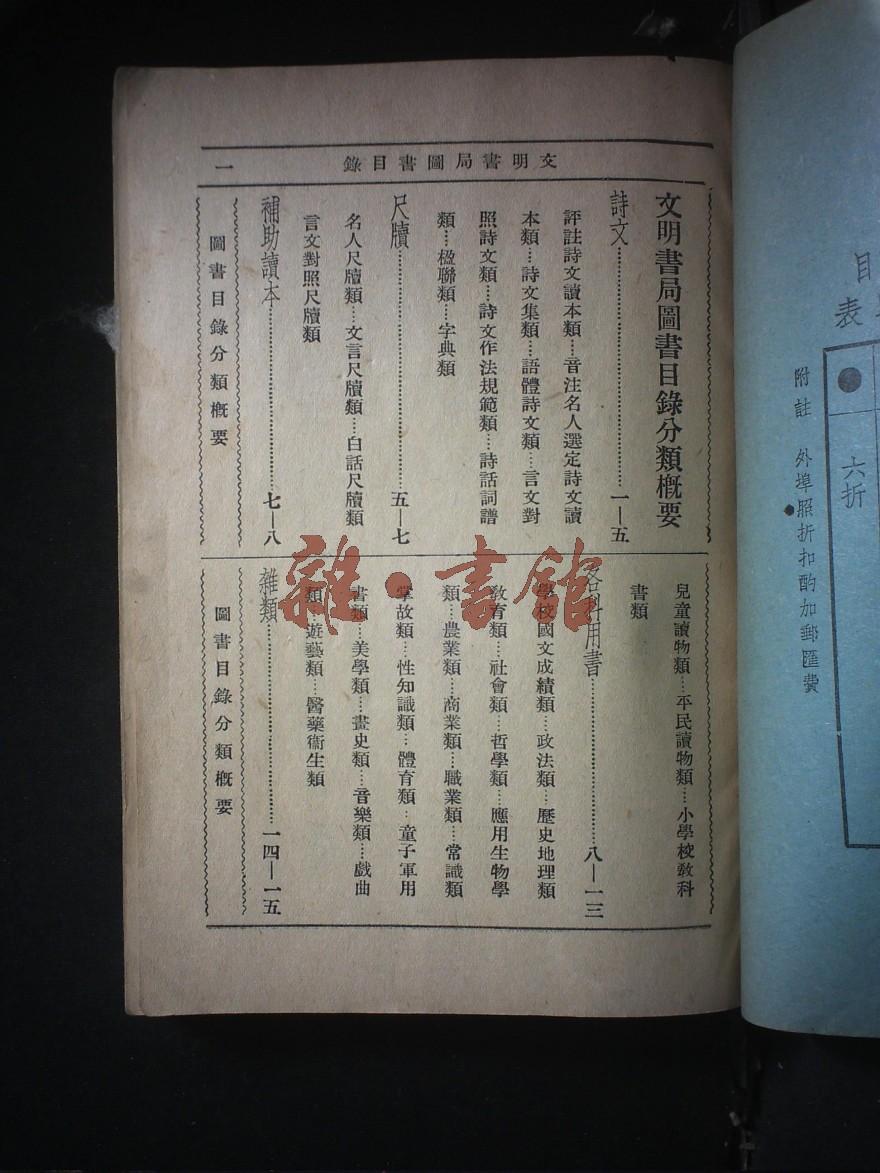 文明書局圖書目錄
一
文明書局圖書目錄分類概要
詩文……一—五
評註詩文讀本類……音注名人選定詩文讀
本類……詩文集類……語體詩文類……言文對
照詩文類……詩文作法規範類……詩話詞譜
類……楹聯類……字典類
尺牘……五—七
名人尺牘類……文言尺牘類……白話尺牘類
言文對照尺牘類
補助讀本……七—八
圖書目錄分類概要
兒童讀物類……平民讀物類……小學校教科
書類
各科用書……八—一三
學校國文成績類……政法類……歷史地理類
教育類……社會類……哲學類……應用生物學
類……農業類……商業類……職業類……常識類
掌故類……性知識類……體育類……童子軍用
書類……美學類……畫史類……音樂類……戲曲
類……遊藝類……醫藥衞生類
雜類……一四—一五
圖書目錄分類概要
雜·書館
目
表
●
六折
附註　外埠照折扣酌加郵匯費